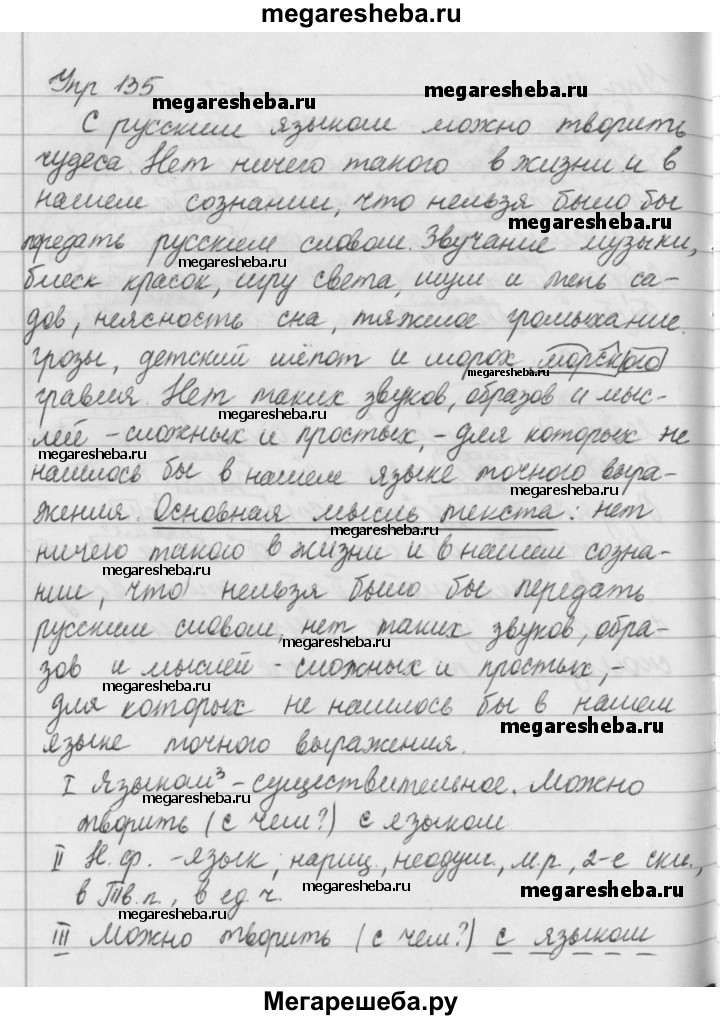 megaresheba.ru
Упр 135
megaresheba.ru
megaresheba.ru
С русским языком можно творить
чудеса. Нет ничего такого в жизни и в
megaresheba.ru
нашем сознании, что нельзя было бы
megaresheba.ru
передать русским словом. Звучание музыки,
megaresheba.ru
блеск красок, игру света, шум и тень са-
megaresheba.ru
дов, неясность сна, тяжкое громыхание
грозы, детский шёпот и шорох морского
megaresheba.ru
гравия. Нет таких звуков, образов и мыс-
megaresheba.ru
лей - сложных и простых, - для которых не
megaresheba.ru
нашлось бы в нашем языке точного выра-
megaresheba.ru
жения. Основная мысль текста: нет
megaresheba.ru
ничего такого в жизни и в нашем созна-
megaresheba.ru
нии, что нельзя было бы передать
megaresheba.ru
русским словом, нет таких звуков, обра-
megaresheba.ru
зов и мыслей - сложных и простых, -
megaresheba.ru
для которых не нашлось бы в нашем
megaresheba.ru
языке точного выражения.
I Языком³ - существительное. Можно
megaresheba.ru
творить (с чем?) с языком
II Н. ф. - язык, нариц., неодуш., м.р., 2-е скл.,
megaresheba.ru
в Тв. п., в ед. ч.
megaresheba.ru
III Можно творить (с чем?) с языком
megaresheba.ru
Мегарешеба.ру